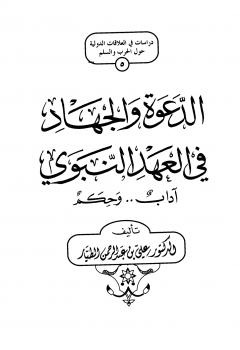 دراسات في العلاقات الدولية
حول الحرب والسلم
٥
الدَّعوَة وَالجِهَاد
في العَهدِ النَّبَويّ
آدابٌ .. وَحِكَم
تأليف
الدكتور علي بن عبد الرحمن الطيار